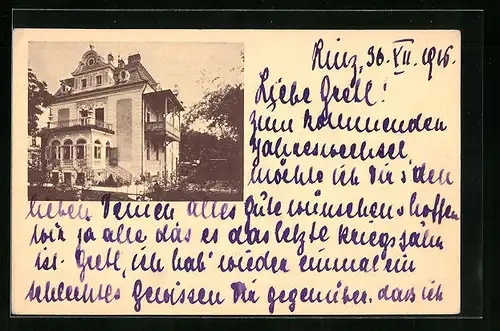 Linz, 30. XII. 1916.
Liebe Gretl!
Zum kommenden
Jahreswechsel
möchte ich Dir u. den
lieben Deinen alles Gute wünschen u. hoffen
wir ja alle das es das letzte Kriegsjahr
ist. Gretl, ich hab' wieder einmal ein
schlechtes Gewissen Dir gegenüber, dass ich